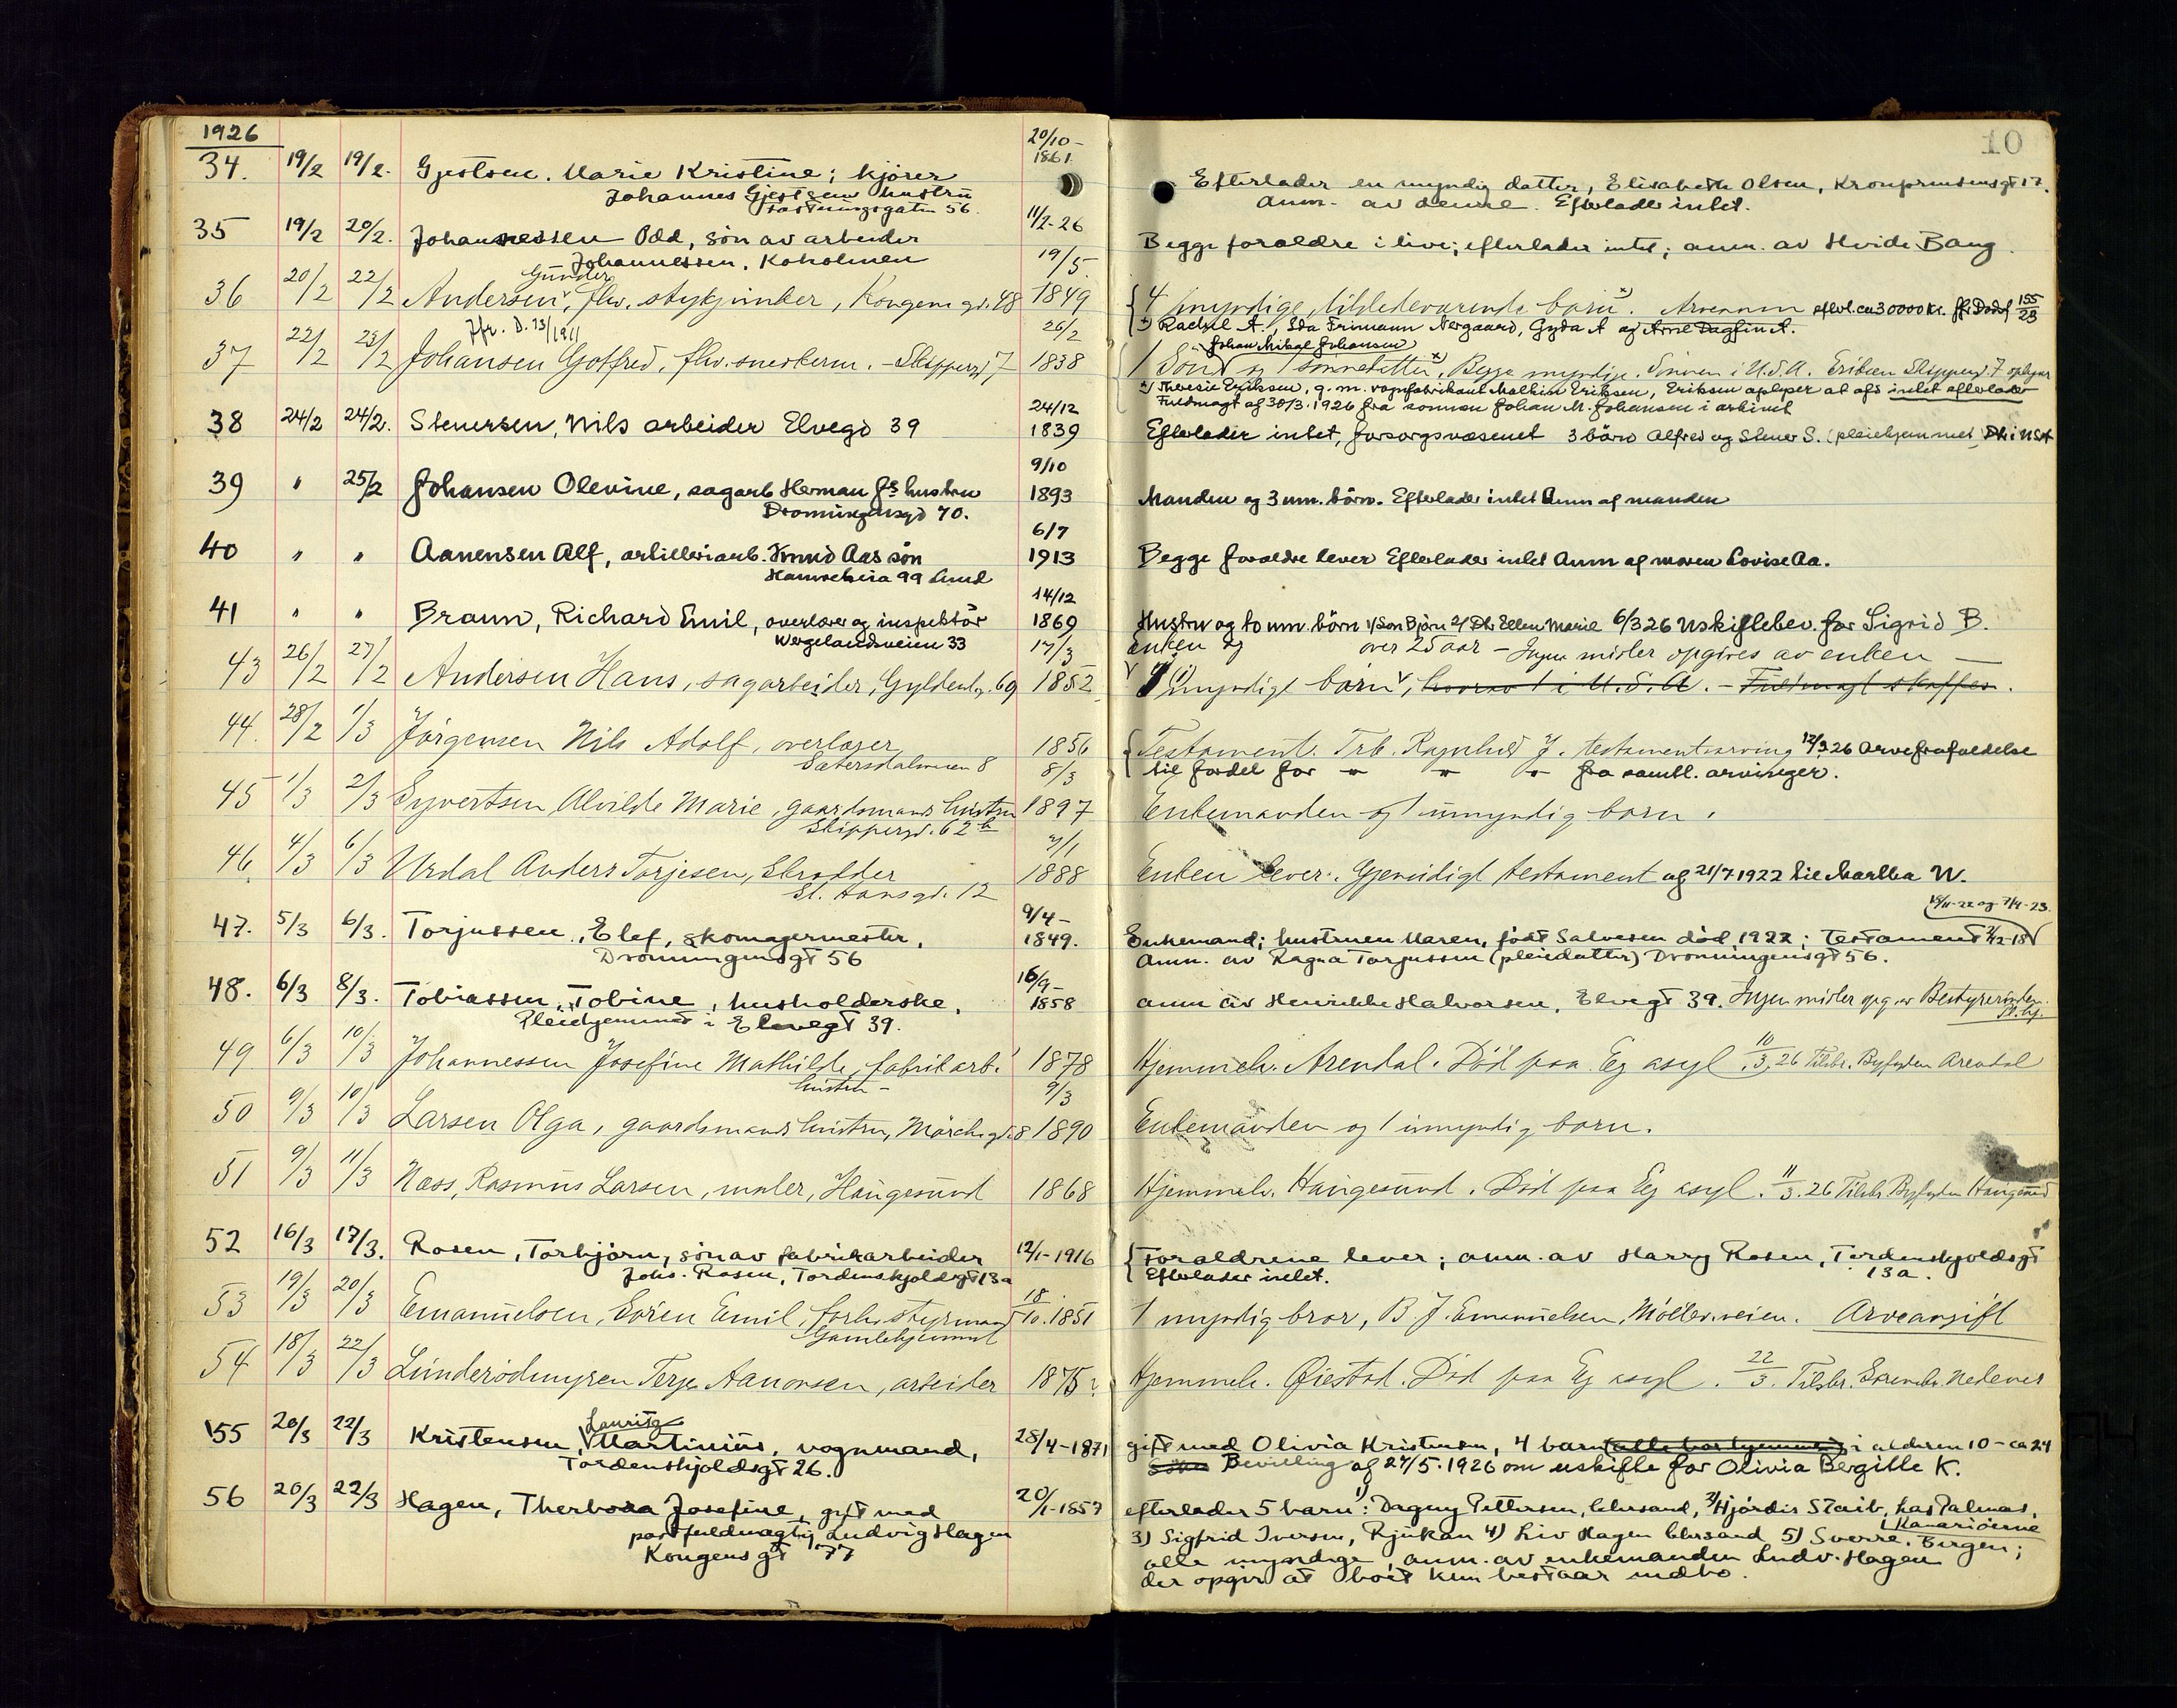 1926
10
34. 19/2 19/2. Gjestsen. Marie Kristine; kjører 20/10- 1861.
Johannes Gjestsens hustru
Fæstningsgaten 56.
Efterlader en myndig datter, Elisabeth Olsen, Kronprinsensgt 17.
Anm. av denne. Efterlader intet.
35 19/2 20/2. Johannessen Odd, søn av arbeider 11/2-26
Johannessen. Koholmen
Begge foraldre i live; efterlader intet; anm. av Hvide Bang.
36 20/2 22/2 Andersen, Gunder flv. stykjunker, Kongens gd. 48 19/5 1849
{4 myndige, tilstedevarende barn x). Arveanm efterl. ca 30000 kr. jfr Dødsf 155/23
x) Rachel A., Ida Frimann Nergaard, Gyda A og Arne Dagfin A.
Jfr. D. 73/1911
37 22/2 23/2 Johansen Gotfred, flv. snekkerm. - Skippergd 7 26/2 1838
Johan Mikal Johansen
1 Søn og 1 sønnedatter x), Begge myndige. Sønnen i U.S.A. Eriksen Skippergd. 7 opgiver
x) Theresie Eriksen, g. m. vognfabrikant Mathias Eriksen, Eriksen oplyser at afd intet efterlader
Fuldmagt af 30/3. 1926 fra sønnen Johan M. Johansen i arkivet
38 24/2 24/2. Stenersen, Nils arbeider Elvegd 39 24/12 1839
Efterlader intet, forsorgsvæsenet 3 børn Alfred og Stener S. (pleiehjemmet) Dtr i USA
39 " 25/2 Johansen Olevine, sagarb Herman Js hustru 9/10 1893
Dronningensgd 70.
Manden og 3 um. børn. Efterlader intet Anm af manden
40 " " Aanensen Alf, artilleriarb. Knud Aas søn 6/7 1913
Hamreheia 99 Lund
Begge foraldre lever Efterlader intet Anm af moren Lovise Aa.
41 " " Braun, Richard Emil, overlærer og inspektör 14/12 1869
Wergelandsveien 33
Hustru og to um. børn 1/ Søn Bjørn 2/ Dtr Ellen Marie 6/3 26 Uskiftebev. for Sigrid B.
43 26/2 27/2 Andersen Hans, sagarbeider, Gyldenl.g. 69 17/3 1852
Enken og over 25 aar - Ingen midler opgives av enken —
7 myndige børn, hvorav 1 i U.S.A. - Fuldmagt skaffes.
44. 28/2 1/3 Jörgensen Nils Adolf, overlærer 1856
Sætersdalsveien 8
{Testament. Frk. Ragnhild J. testamentsarving 12/3 26 Arvefrafaldelse
til fordel for " " " fra samtl. arvinger.
45 1/3 2/3 Syvertsen Alvilde Marie, gaardsmands hustru 8/3 1897
Skippergd. 62 b
Enkemanden og 1 umyndig barn.
46. 4/3 6/3 Urdal Anders Torjesen, Skrædder 2/1 1888
St. Hansgd. 12
Enken lever. Gjensidigt testament af 21/7 1922 til Martha U.
47. 5/3 6/3. Torjussen, Elef, skomagermester, 9/4- 1849.
Dronningensgt 56
18/11-22 og 7/4-23.
Enkemand; hustruen Maren, født Salvesen død 1922; Testament 2/12-18
Anm. av Ragna Torjussen (pleiedatter) Dronningensgt 56.
48. 6/3 8/3. Tobiassen, Tobine, husholderske, 16/9- 1858
Pleiehjemmet i Elvegt 39.
anm av Henrikke Halvorsen, Elvegt 39. Ingen midler opg. av Bestyrerinden.
49 6/3 10/3 Johannessen Josefine Mathilde, fabrikarb. 1878
hustru -
Hjemmeh. Arendal. Död paa Eg asyl. 10/3.26 Tilskr. Byfogden Arendal
50 9/3 10/3 Larsen Olga, gaardsmands hustru, Mörchsgd. 8 9/3 1890
Enkemanden og 1 umyndig barn.
51 9/3 11/3 Næss, Rasmus Larsen, maler, Haugesund 1868
Hjemmeh. Haugesund. Död paa Eg asyl. 11/3.26 Tilskr. Byfogden Haugesund
52 16/3 17/3. Rosen, Torbjørn, søn av fabrikarbeider 12/1-1916
Johs. Rosen, Tordenskjoldsgt 13a
{Foraldrene lever; anm. av Harry Rosen, Tordenskjoldsgt
Efterlader intet. 13a.
53 19/3 20/3 Emanuelsen, Sören Emil, forh. styrmand 18/10.1851
Gamlehjemmet
1 myndig bror, B J. Emanuelsen, Möllerveien. Arveavgift
54 18/3 22/3 Lunderødmyren Terje Aanonsen, arbeider 1875?
Hjemmeh. Øiestad. Död paa Eg asyl. 22/3. Tilskr. Sorenskr. Nedenes
55 20/3 22/3 Kristensen, Lauritz Martinius, vognmand, 28/4-1871
Tordenskjoldsgt 26.
gift med Olivia Kristensen, 4 barn (alle bor hjemme) i alderen 10 - ca 24
Bevilling af 27/5.1926 om uskifte for Olivia Bergitte K.
56 20/3 22/3 Hagen, Therbora Josefine, gift med 20/1-1857
postfuldmægtig Ludvig Hagen
Kongensgt 77
efterlader 5 barn: 1) Dagny Pettersen, Chrsand, 2) Hjördis Staib, Las Palmas,
Kanariøerne
3) Sigfrid Iversen, Rjukan 4) Liv Hagen Chrsand 5) Sverre. Bergen;
alle myndige, anm. av enkemanden Ludv. Hagen
der opgir at boet kun bestaar indbo.